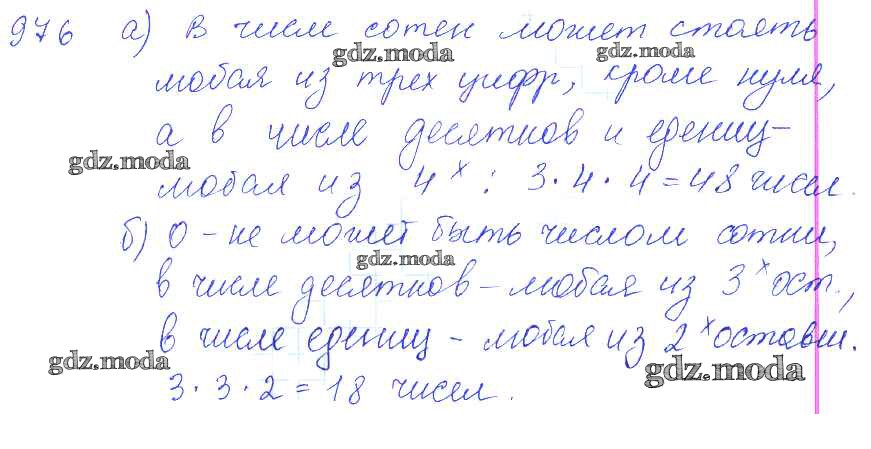 976 а) в числе сотен может стоять
gdz.moda gdz.moda
любая из трех цифр, кроме нуля,
а в числе десятков и едениц-
gdz.moda
любая из 4х: 3·4·4=48 чисел.
б) 0 - не может быть числом сотни,
gdz.moda
в числе десятков - любая из 3х ост.,
в числе едениц - любая из 2х оставш.
gdz.moda gdz.moda
3·3·2=18 чисел.